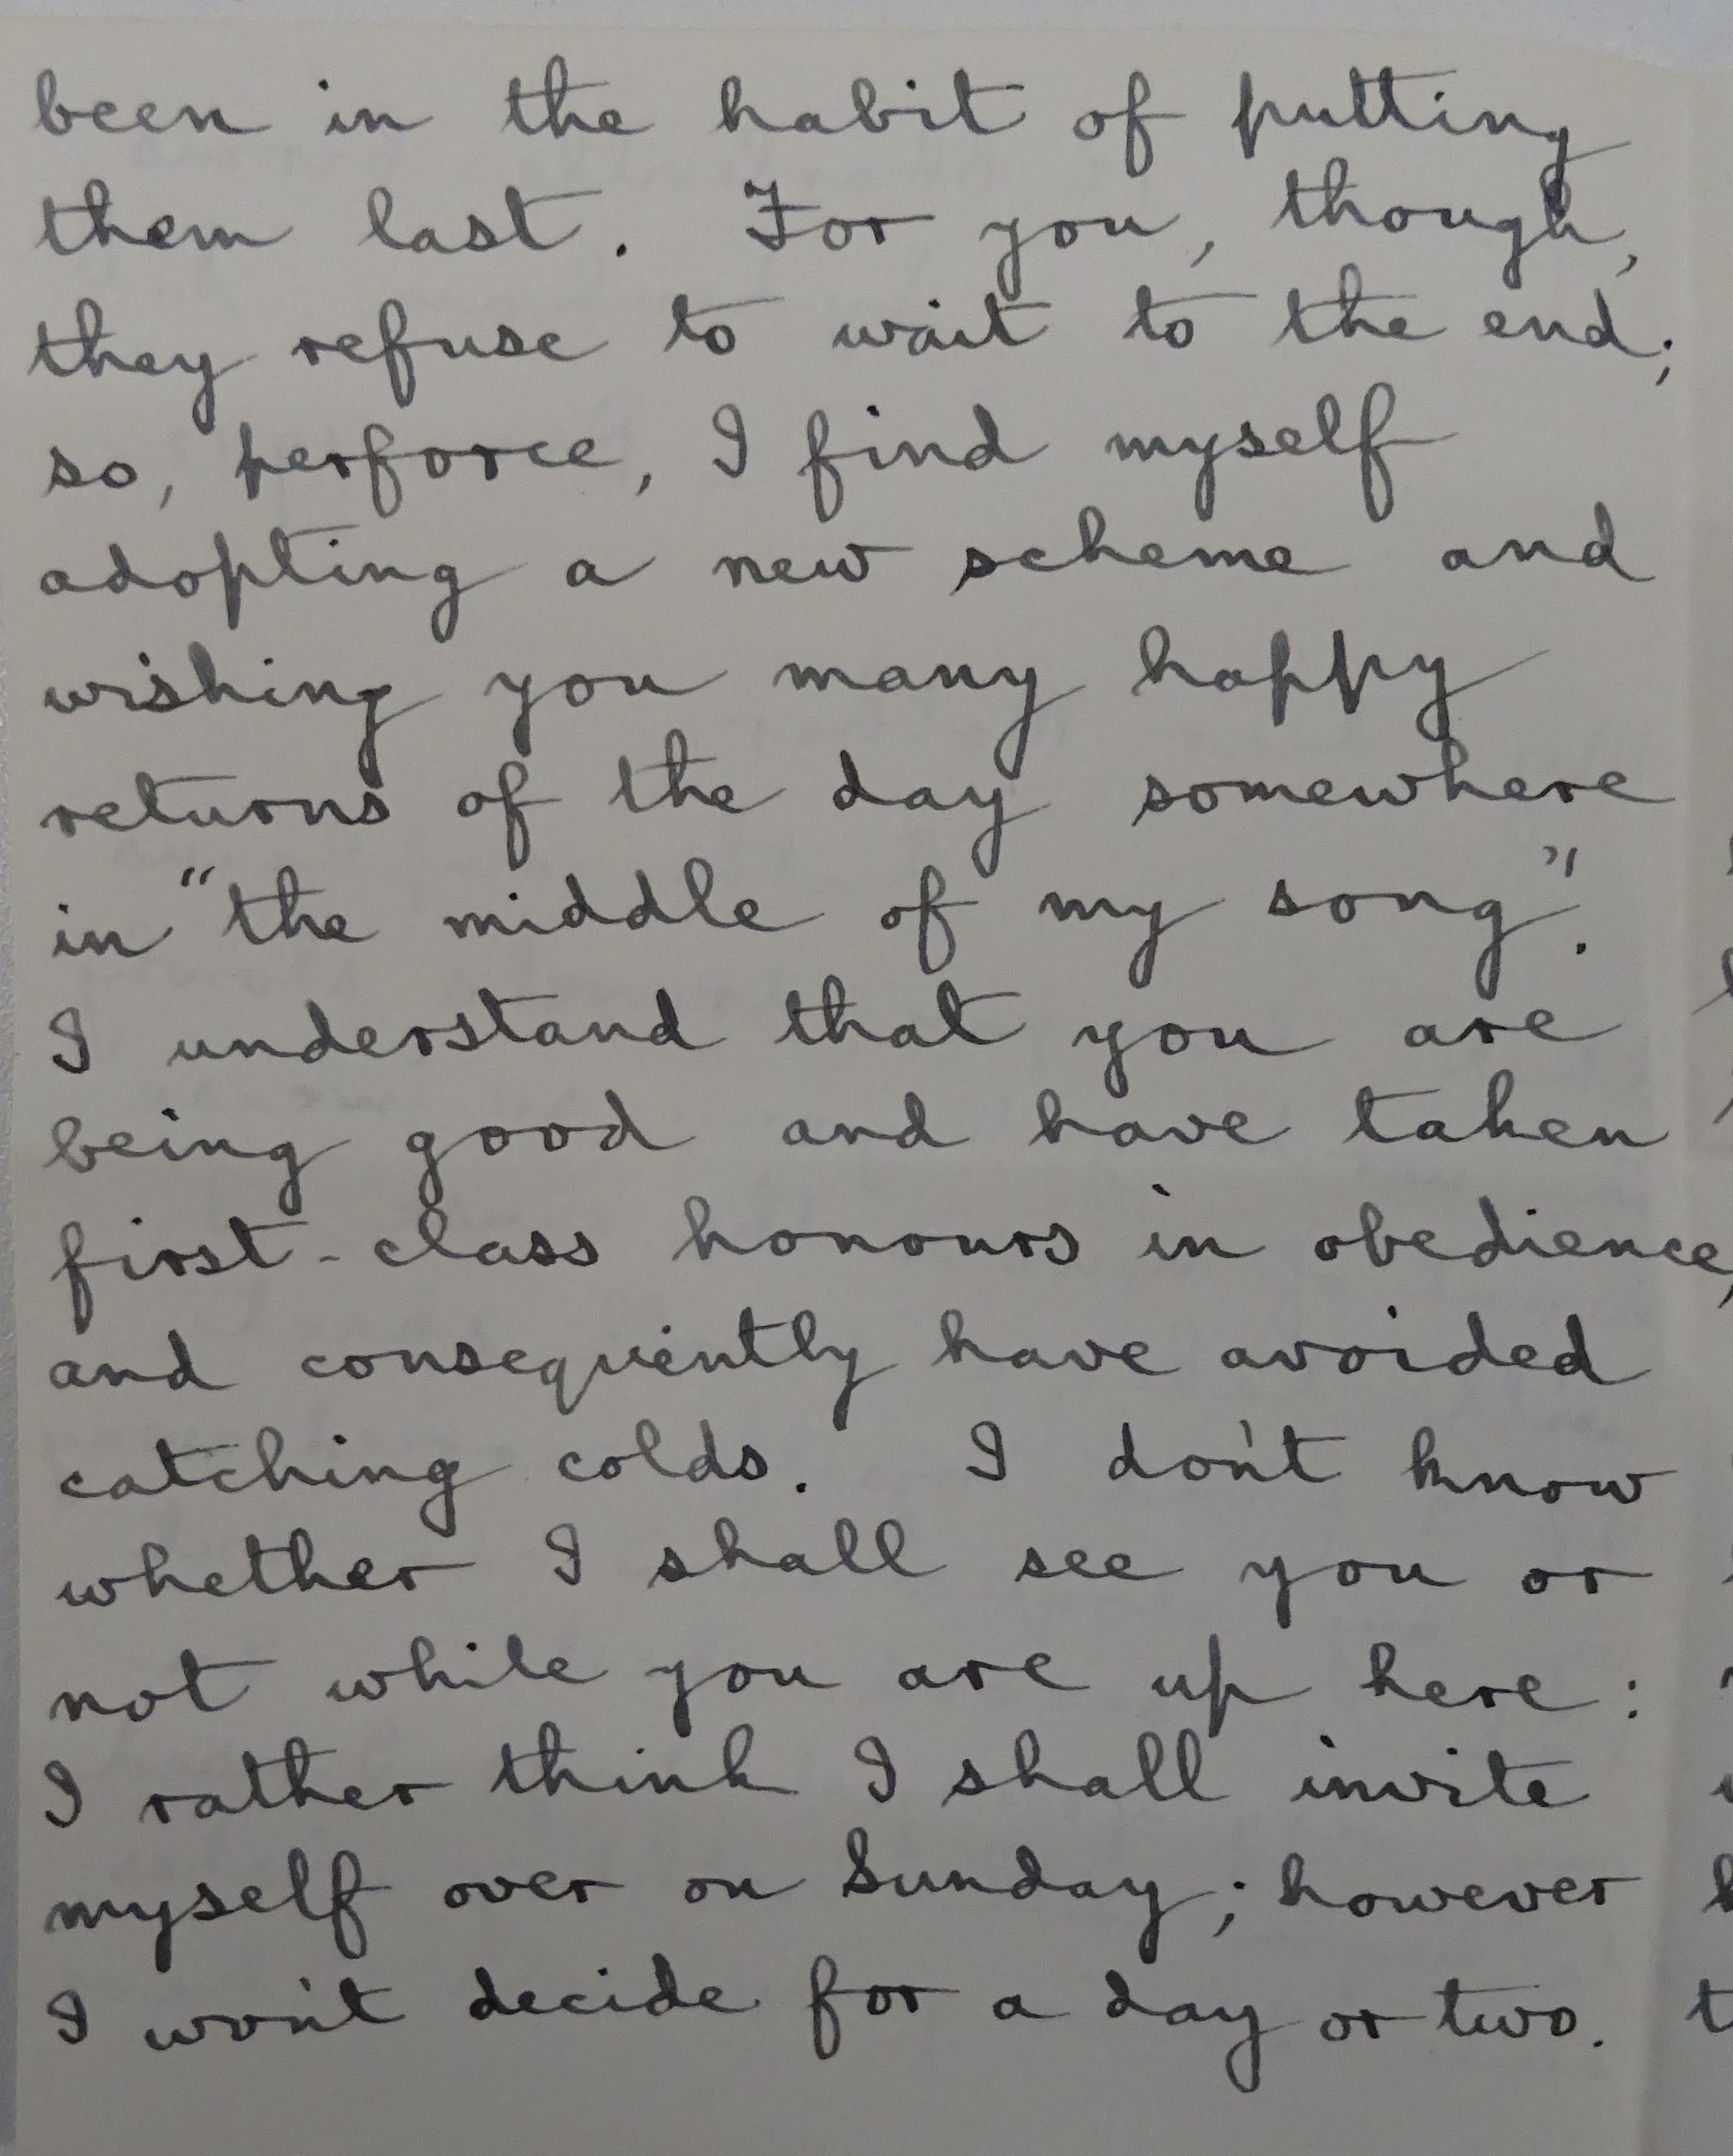 been in the habit of putting
them last. For you, though,
they refuse to wait to the end;
so, perforce, I find myself
adopting a new scheme and
wishing you many happy
returns of the day somewhere
in "the middle of my song".
I understand that you are
being good and have taken
first-class honours in obedience,
and consequently have avoided
catching colds. I don't know
whether I shall see you or
not while you are up here:
I rather think I shall invite
myself over on Sunday; however
I won't decide for a day or two.